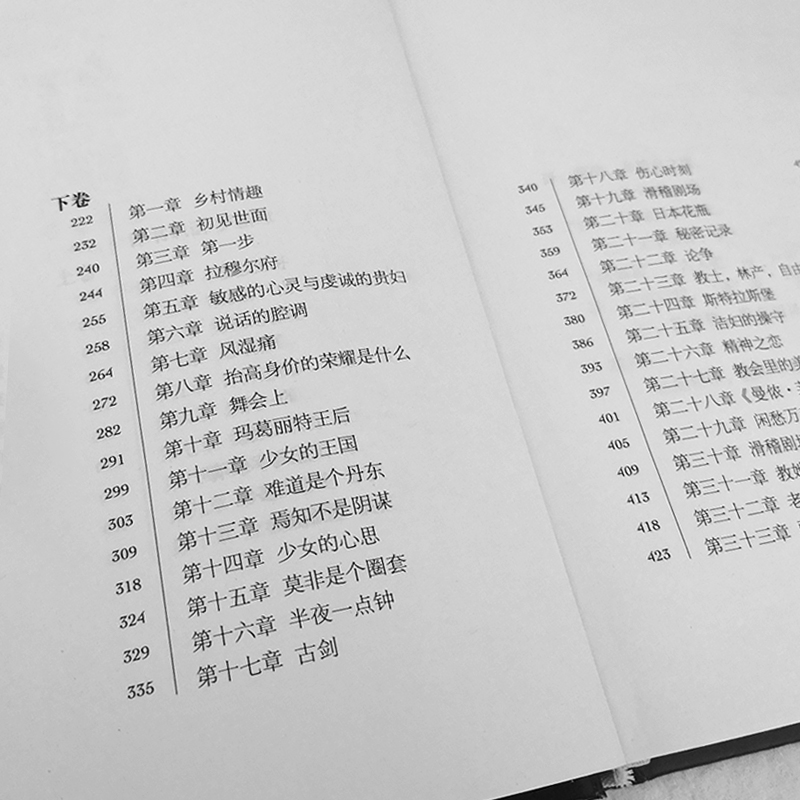 下卷
222 第一章 乡村情趣
232 第二章 初见世面
240 第三章 第一步
244 第四章 拉穆尔府
255 第五章 敏感的心灵与虔诚的贵妇
258 第六章 说话的腔调
264 第七章 风湿痛
272 第八章 抬高身价的荣耀是什么
282 第九章 舞会上
291 第十章 玛葛丽特王后
299 第十一章 少女的王国
303 第十二章 难道是个丹东
309 第十三章 焉知不是阴谋
318 第十四章 少女的心思
324 第十五章 莫非是个圈套
329 第十六章 半夜一点钟
335 第十七章 古剑
340 第十八章 伤心时刻
345 第十九章 滑稽剧场
353 第二十章 日本花瓶
359 第二十一章 秘密记录
364 第二十二章 论争
372 第二十三章 教士，林产，自由
380 第二十四章 斯特拉斯堡
386 第二十五章 洁妇的操守
393 第二十六章 精神之恋
397 第二十七章 教会里的美
401 第二十八章《曼侬·
405 第二十九章 闲愁万
409 第三十章 滑稽剧
413 第三十一章 教她
418 第三十二章 老
423 第三十三章